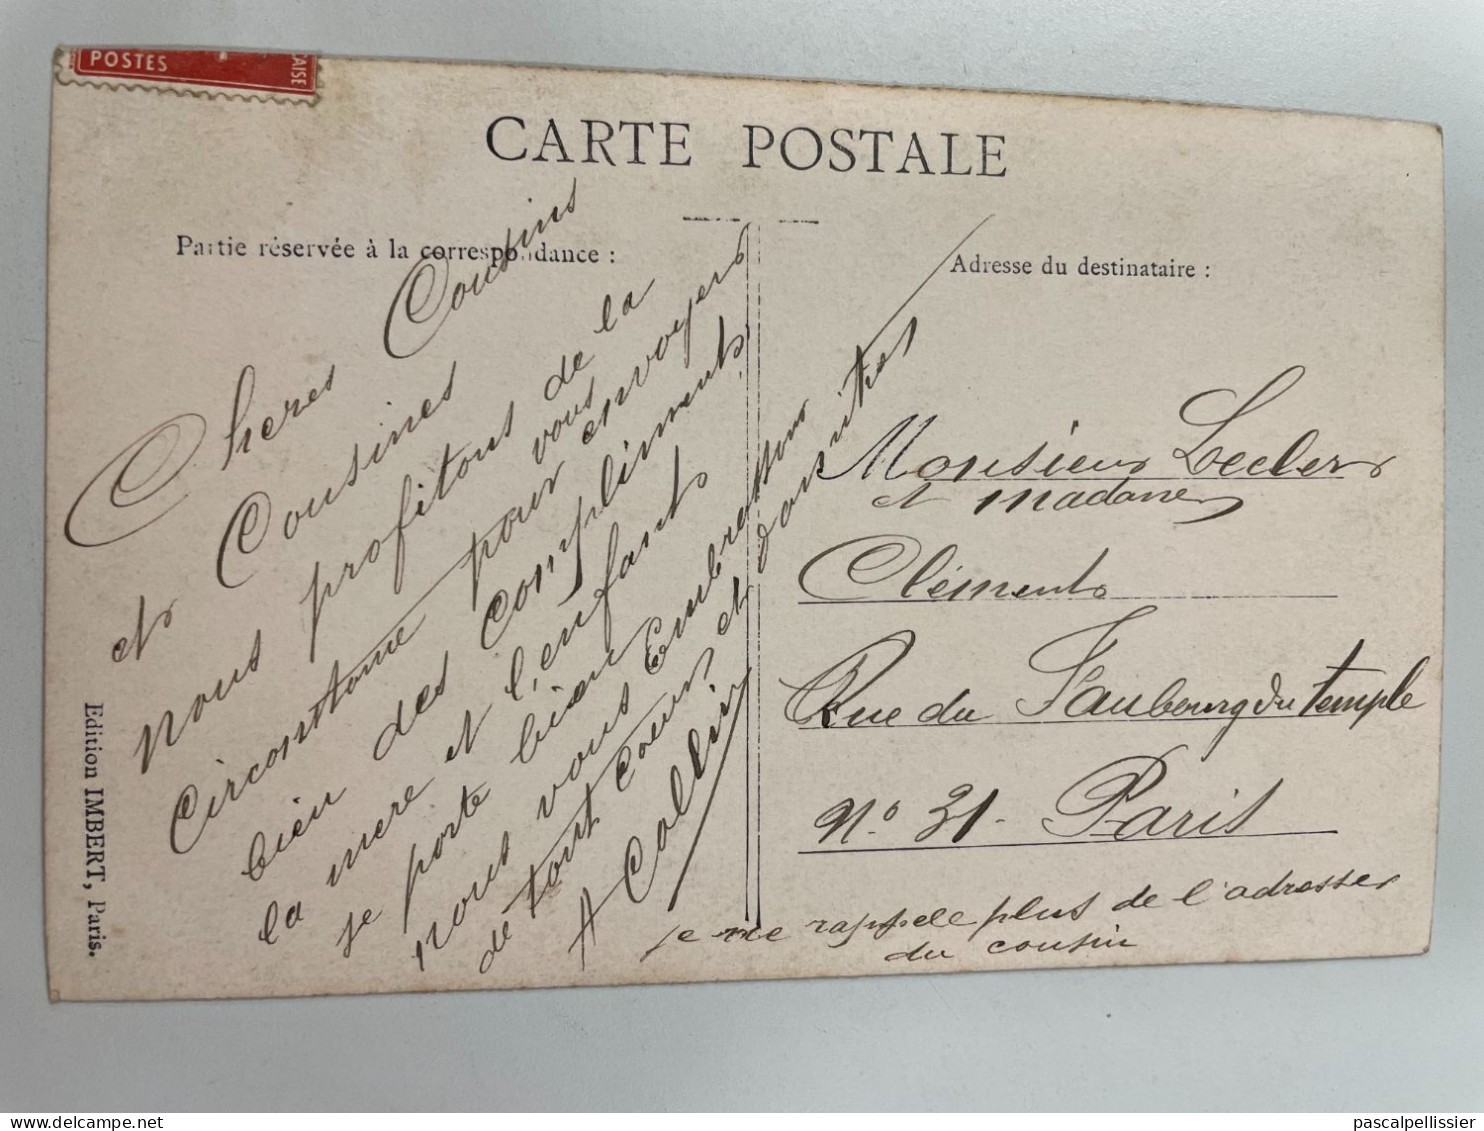 POSTES
AISE
CARTE POSTALE
Partie réservée à la correspondance :
Adresse du destinataire :
Cheres Cousins
et Cousines
nous profitons de la
Circonstance pour vous envoyer
bien des Compliments
la mere et l'enfant
se porte bien
nous vous Embrassons
de tout Coeur et
A Collin
Monsieur Lecler
et madame
Clément
Rue du Faubourg du temple
No 31. Paris
je me rappele plus de l'adresse
du cousin
Edition IMBERT, Paris.
pascalpellissier